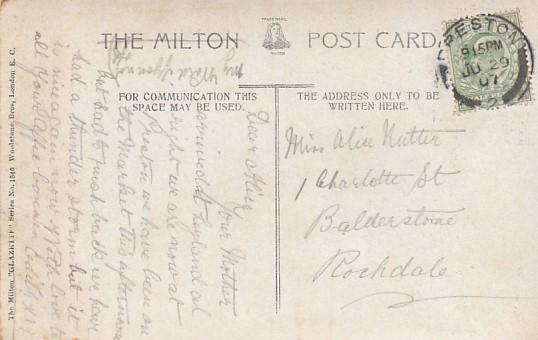 THE MILTON POST CARD
TRADE MARK
MILTON
PRESTON
9.15PM
JU 29
07
FOR COMMUNICATION THIS
SPACE MAY BE USED.
THE ADDRESS ONLY TO BE
WRITTEN HERE.
Miss Alice Nutter
1 Charlotte St
Balderstone
Rochdale
Dear Alice
your Mother
arrived at Leyland al
right we are now at
Preston we have been on
the Market this afternoon
but had to rush back we have
had a thunder storm but it
is nice again now with love to
all your Affec Cousin Edith
The Milton "GLAZETTE" Series No. 1540 Woolstone Bros., London E. C.